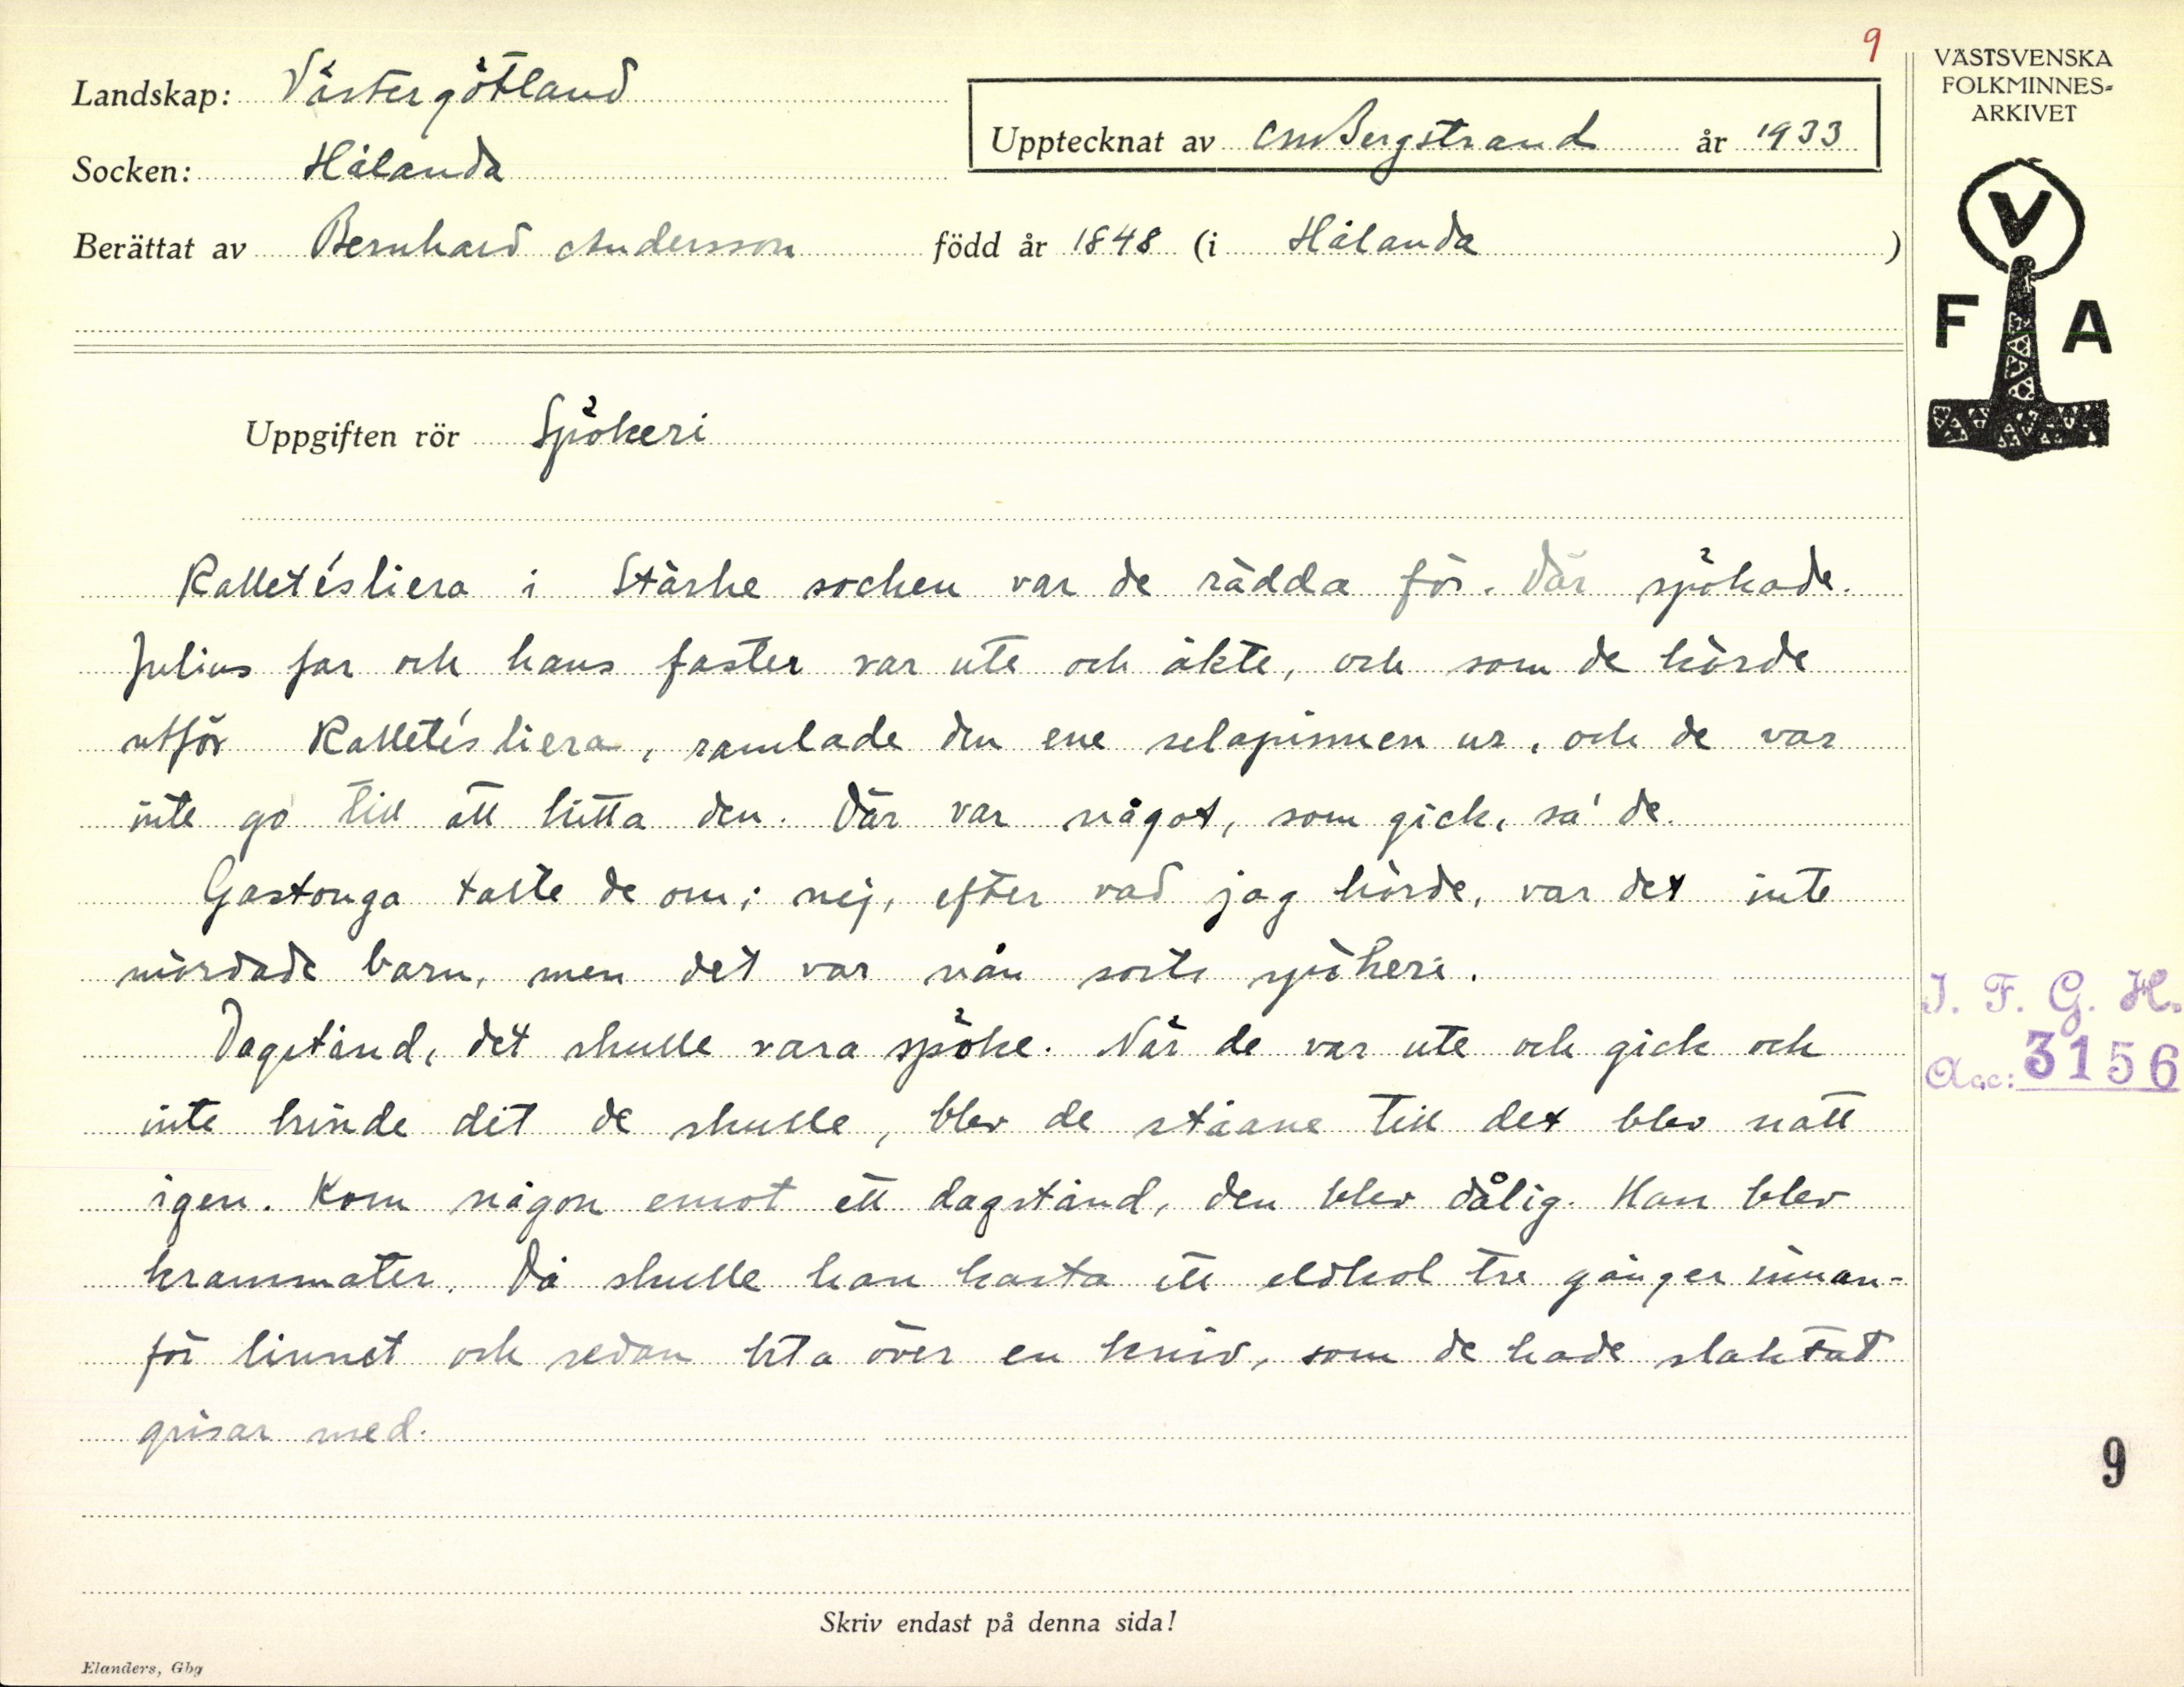 9
VÄSTSVENSKA
FOLKMINNES-
ARKIVET
Landskap: Västergötland
Upptecknat av CM Bergstrand år 1933
Socken: Hålanda
Berättat av Bernhard Andersson född år 1848 (i Hålanda )
V
F A
Uppgiften rör Spökeri
i Stärke socken var de rädda för. Där spökade.
Julius far och hans faster var ute och åkte, och som de körde
utför , ramlade den ene selapinnen ur, och de var
inte go till att hitta den. Där var något, som gick, sa' de.
Gastonga talte de om; nej, efter vad jag hörde, var det inte
mördade barn, men det var nån sorts spökeri.
Dagstånd, det skulle vara spöke. När de var ute och gick och
inte hinde dit de skulle, blev de ståane till det blev natt
igen. Kom någon emot ett dagstånd, den blev dålig. Han blev
krammater. Då skulle han kasta ett eldkol tre gånger innan-
för linnet och sedan bita över en kniv, som de hade slaktat
grisar med.
I. F. G. H.
Acc: 3156
9
Skriv endast på denna sida!
Elanders, Gbg